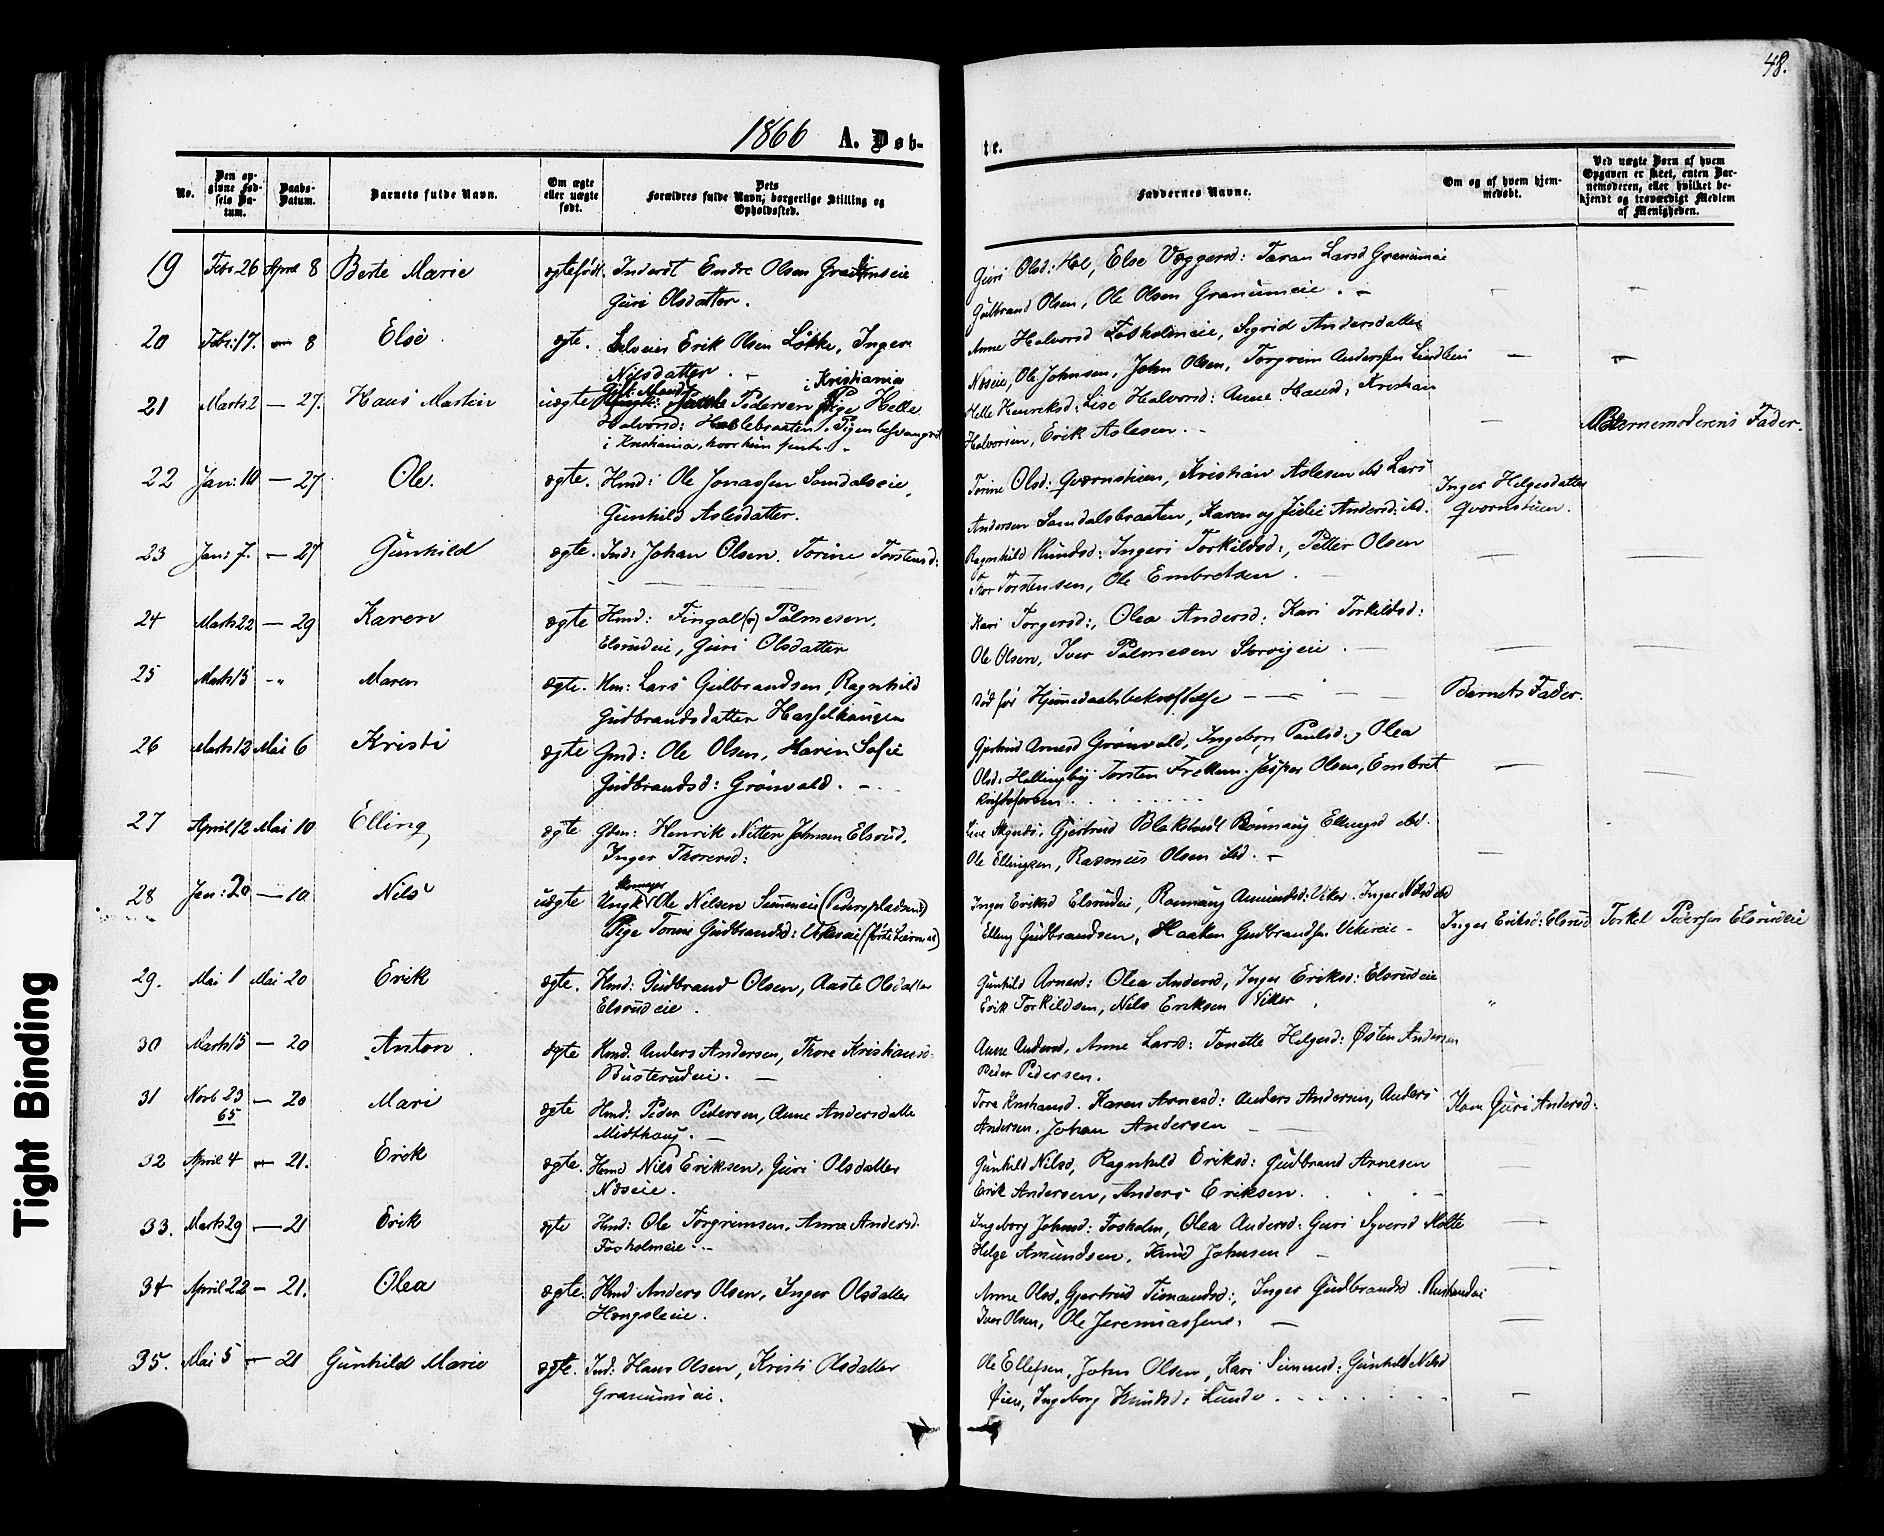 48.
1866 A. Døb-
te.
No.
Den op-
givne Fød-
sels Da-
tum.
Daabs-
Datum.
Barnets fulde Navn.
Om ægte
eller uægte
født.
Dets
Forældres fulde Navn, borgerlige Stilling og
Opholdssted.
Faddernes Navne.
Om og af hvem hjem-
medøbt.
Ved uægte Børn af hvem
Opgaven er skeet, enten Bar-
nemoderen, eller hvilket be-
kjendt og troværdigt Medlem
af Menigheden.
19 Febr 26 April 8 Berte Marie ægtefødt. Inderst Endre Olsen
Guri Olsdatter.
Guri Olsd: Hol, Else Væggersd: Taran Larsd Granumeie
Gulbrand Olsen, Ole Olsen Granumeie. -
20 Febr: 17. - 8 Else ægte. Selveier Erik Olsen Løkke, Inger
Nilsdatter. -
Anne Halvorsd Fosholmeie, Sigrid Andersdatter
Næseie, Ole Johnsen, John Olsen, Torgrim Anderssen
21 Marts 2 - 27. Hans Martin uægte Gift Mand Pedersen i Kristiania Pige Helle
Halvorsd:
i Kristiania, hvor hun
Helle Henriksd: Lise Halvorsd: Anne Hansd: Kristian
Halvorsen, Erik Aslesen. -
Barnemoderens Fader.
22 Jan: 10 - 27 Ole. ægte. Hmd: Ole Jonassen Somdalseie,
Gunhild Aslesdatter.
Torine Olsd: Qvernstuen, Kristian Aslesen ibd Lars
Andersen Somdalsbraaten, Karen og Julie Andersd: ibd.
Inger Helgesdatter
Qvernstuen.
23 Jan: 7. - 27 Gunhild ægte. Ind: Johan Olsen. Torine Torstensd:
Ragnhild Knudsd: Ingeri Torkildsd:, Petter Olsen
Thor Torstensen, Ole Embretsen.
24 Marts 22 - 29 Karen ægte Hmd: Fingal(?) Palmesen.
Elsrudeie, Guri Olsdatter
Kari Torgersd:, Olea Andersd: Kari Torkildsd:
Ole Olsen, Iver Palmesen Storvigeie. -
25 Marts 15 -" Maren ægte. Hm: Lars Gulbrandsen, Ragnhild
Gudbrandsdatter Hasselhaugen
død før Hjemmedaabsbekræftelse
Barnets Fader.
26 Marts 12 Mai 6 Kristi ægte Gmd: Ole Olsen, Karin Sofie
Gudbrandsd: Grønvold. -
Gjertrud Arnesd Grønvold, Ingeborg Paulsd:, Olea
Olsd: Hallingby Torsten Jesper Olsen, Embret
Kristofersen.
27 April 12 Mai 10 Elling ægte Gbm: Henrik Nitter Johnsen Elsrud,
Inger Thoresd:
Gjertrud Blakstvedt Rønnaug Ellingsd ibd.
Ole Ellingsen, Rasmus Olsen ibd. -
28 Jan: 20 - 10 Nils uægte Ungk Ole Nilsen
Pige Torine Gudbrandsd: Vikereie (første Leiermaal)
Inger Eriksd Elsrudeie, Rønnaug Amundsd: Viker. Inger Nilsd ibd
Elling Gudbrandsen, Haaken Gudbrandsen Vikereie -
Inger Eriksd: Elsrud
Torkel Pedersen Elsrudeie
29. Mai 1 Mai 20 Erik ægte. Hmd: Gudbrand Olsen, Aaste Olsdatter
Elsrudeie.
Gunhild Arnesd: Olea Andersd, Inger Eriksd: Elsrudeie
Erik Torkildsen, Nils Eriksen Viker
30 Marts 15 - 20 Anton ægte Hmd. Anders Andersen, Thore Kristiansd:
Busterudeie. -
Anne Andersd, Anne Larsd: Tonette Helgesd: Østen Andersen
Peder Pedersen.
31 Novb 23
65 - 20 Mari ægte Hmd: Peder Pedersen, Anne Andersdatter
Midthaug. -
Tore Kristiansd. Karen Arnesd: Anders Andersen, Anders
Andersen, Johan Andersen
Kone Guri Andersd:
32 April 4 - 21. Erik ægte. Hmd Nils Eriksen, Guri Olsdatter
Næseie.
Gunhild Nilsd, Ragnhild Eriksd: Gudbrand Arnesen
Erik Andersen, Anders Eriksen.
33. Marts 29 - 21 Erik ægte Hmd: Ole Torgrimsen, Anne Andersd.
Fosholmeie. -
Ingeborg Johnsd: Fosholm, Olea Andersd: Guri Syversd
Helge Amundsen, Knud Johnsen -
34 April 22 - 21. Olea ægte. Hmd Anders Olsen, Inger Olsdatter
Hongsleie.
Anne Olsd, Gjertrud Timandsd:, Inger Gudbrandsd.
Iver Olsen, Ole Jeremiassen. -
35. Mai 5 - 21 Gunhild Marie ægte. Ind: Hans Olsen, Kristi Olsdatter
Granumseie.
Ole Ellefsen, John Olsen, Kari Simensd: Gunhild Nilsd
Øien, Ingeborg Knudsd: Lunde.
Tight Binding